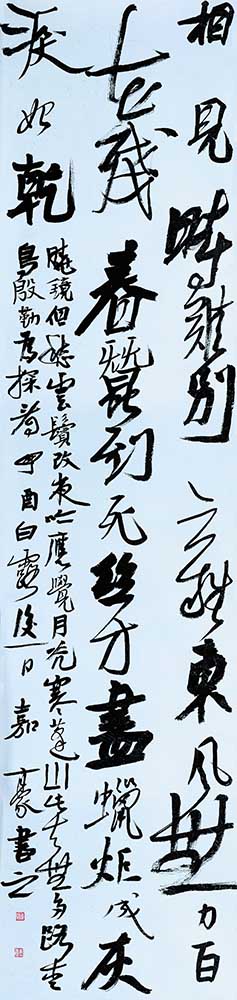 相見時難別亦難東風無力百
花殘春蠶到死絲方盡蠟炬成灰
淚始乾
曉鏡但愁雲鬢改夜吟應覺月光寒蓬山此去無多路青
鳥殷勤為探看丁酉白露後一日嘉豪書之